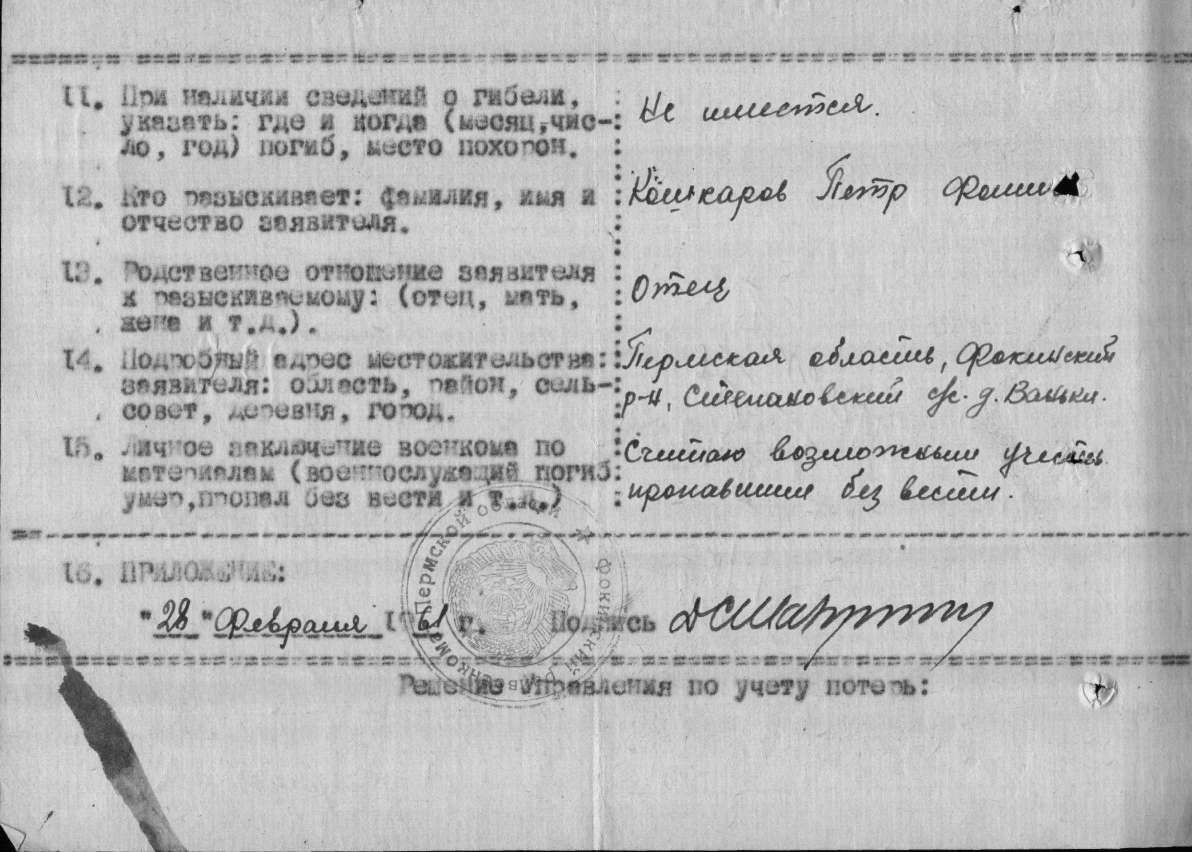 11. При наличии сведений о гибели,
указать: где и когда (месяц, чис-
ло, год) погиб, место похорон.
Не имеется.
12. Кто разыскивает: фамилия, имя и
отчество заявителя.
Кошкаров Петр
13. Родственное отношение заявителя
к разыскиваемому: (отец, мать,
жена и т.д.).
Отец
14. Подробный адрес местожительства:
заявителя: область, район, сель-
совет, деревня, город.
Пермская область, Фокинский
р-н, Степановский с/с. д.
15. Личное заключение военкома по
материалам (военнослужащий погиб
умер, пропал без вести и т.д.)
Считаю возможным учесть
пропавшим без вести.
16. ПРИЛОЖЕНИЕ:
"28" Февраля 1961 г. Подпись
Решение Управления по учету потерь:
Пермской области ☆ Фокинский